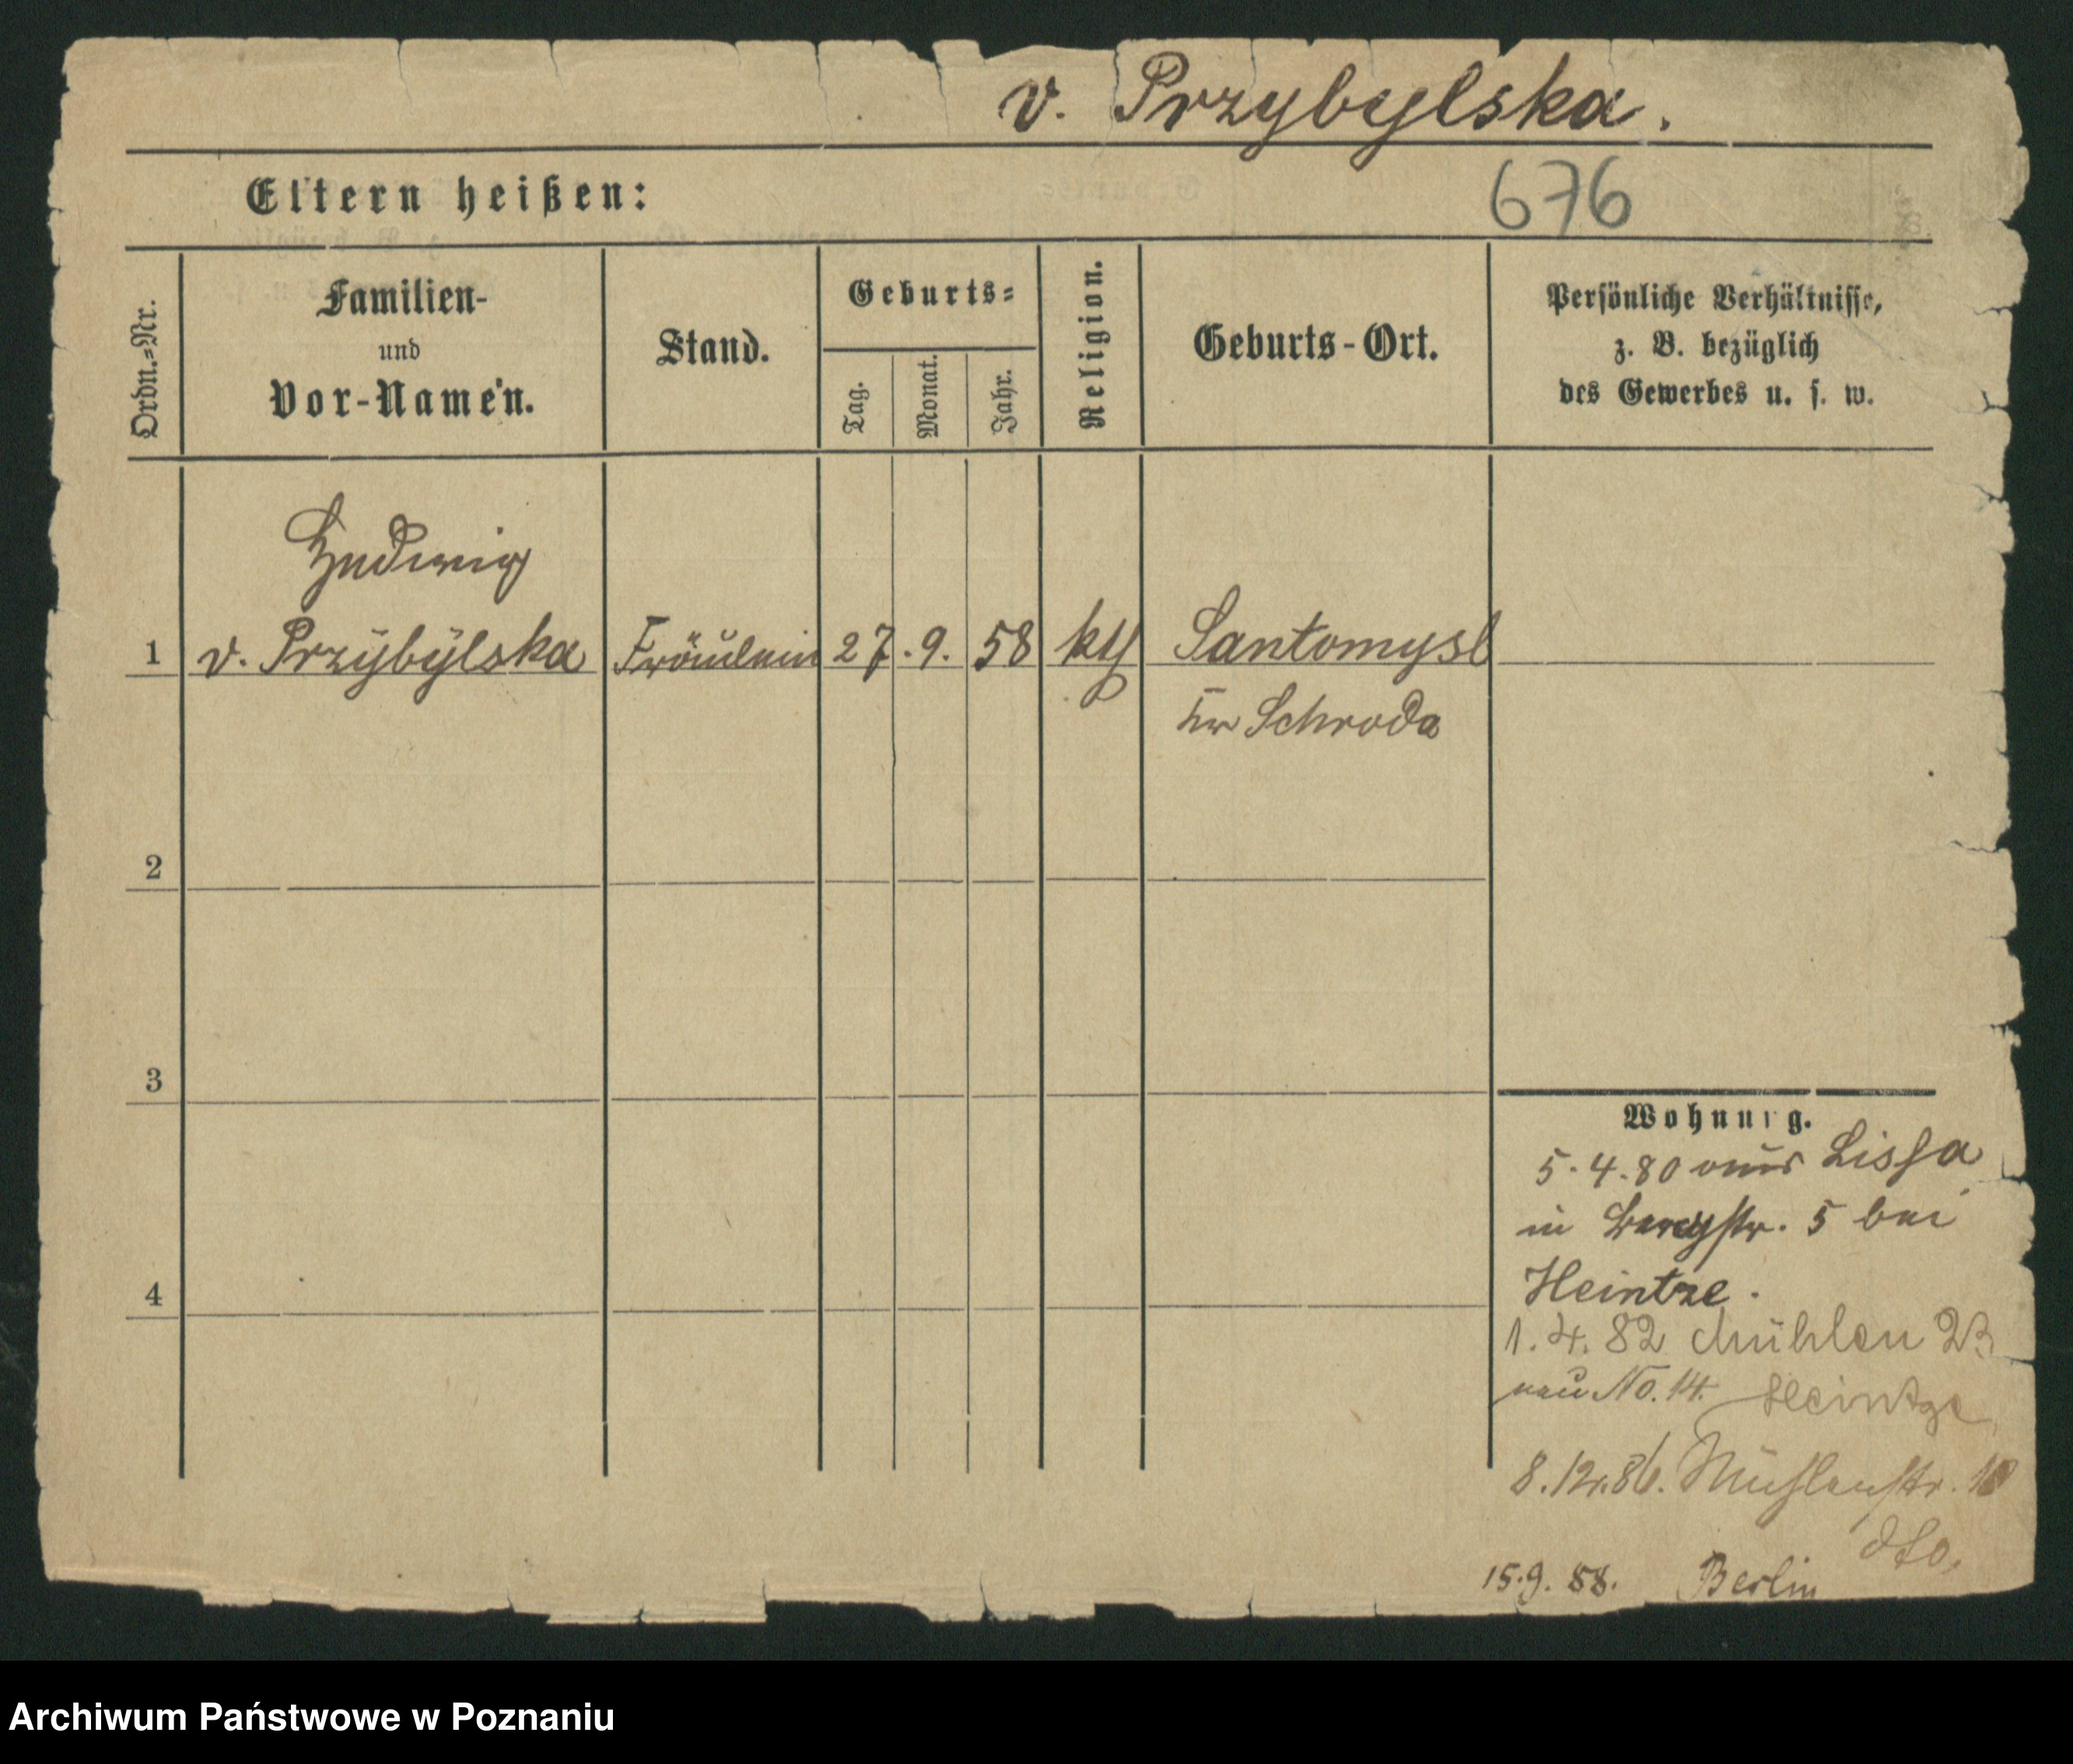 v. Przybylska.
Eltern heißen:
676
Ordn.-Nr.
Familien-
und
Vor-Namen.
Stand.
Geburts-
Tag.
Monat.
Jahr.
Religion.
Geburts-Ort.
Persönliche Verhältnisse,
z. B. bezüglich
des Gewerbes u. s. w.
Hedwig
1 v. Przÿbÿlska Fräulein 27. 9. 58 kth Santomysl
Kr Schroda
2
3
4
Wohnung.
5.4.80 aus Lissa
in Bergstr. 5 bei
Heintze.
1.4.82 Mühlen 23
neu No. 14. Heintze
8.12.86. Mühlenstr. 18
dto.
15.9.88. Berlin
Archiwum Państwowe w Poznaniu